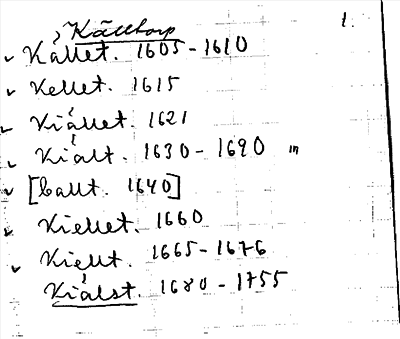 Kälttorp 1.
Kållet. 1605-1610
Kellet. 1615
Kiållet. 1621
Kiålt. 1630-1690 m
[Callt. 1640]
Kiellet. 1660
Kiellt. 1665-1676
Kiålst. 1680-1755